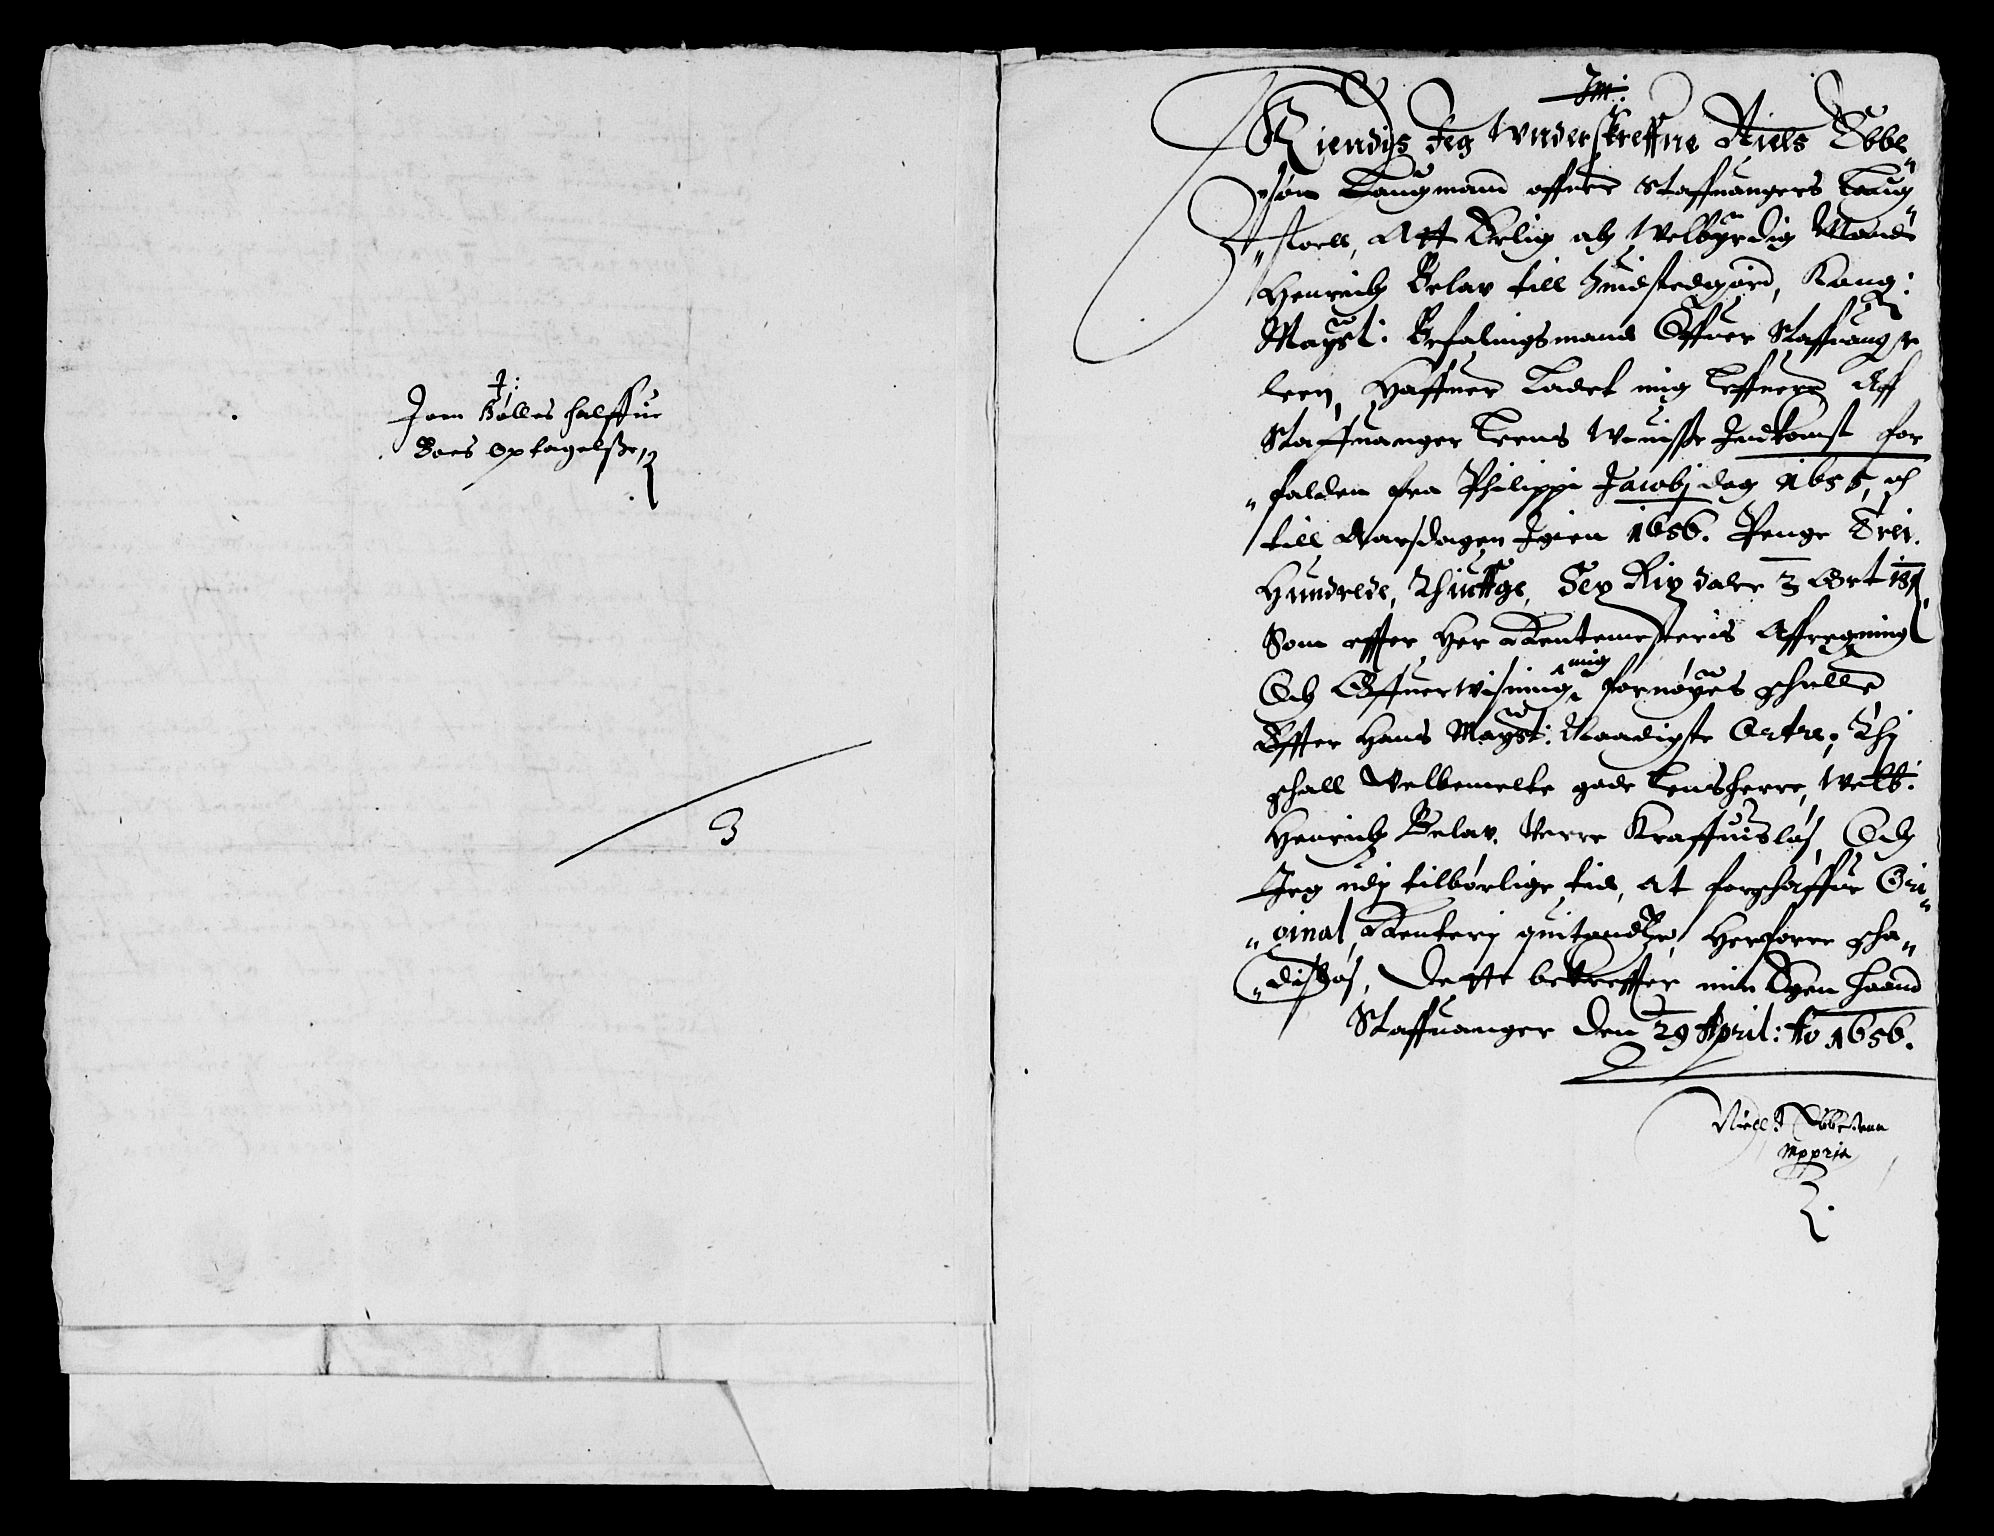 J:
Jom Bølles halffue
Boes optagelsse
3
Jm:
Kiendis Jeg Wnderskreffne Niels Ebbe
søn Laugmand offuer Staffuangers Laug
stoell, Att Erlig och Welbyrdig Mand
Henrich Below till Hundstedgaard, Kong:
Mayst: Befalingsmand Offuer Staffuanger
leen, Haffuer Ladet mig Leffuere Aff
Staffuanger Leens Wuisse Jndkomst for
falden fra Philippi Jacobj dag 1655, och
till Aarsdagen Jgien 1656. Penge Trei
Hundrede, Thiuffge, Sex Rix daler 3 Ort 18 s
Som effter Her Rentemesteris Affregning
Och Offueruisning mig fornøyes schulle
Effter Hans Mayst: Naadigste Ordre, Thj
schall Welbemelte gode Lensherre, Welb:
Henrich Below Werre Kraffuisløs, Och
Jeg udj tilbørlige tid, at forschaffue Ori
ginal Renterj quitandtze, Herforre scha
disløs, Dette bekreffter min Egen haand
Staffuanger Den 29 April: Ao 1656.
Niells Ebbesenn
Mppria